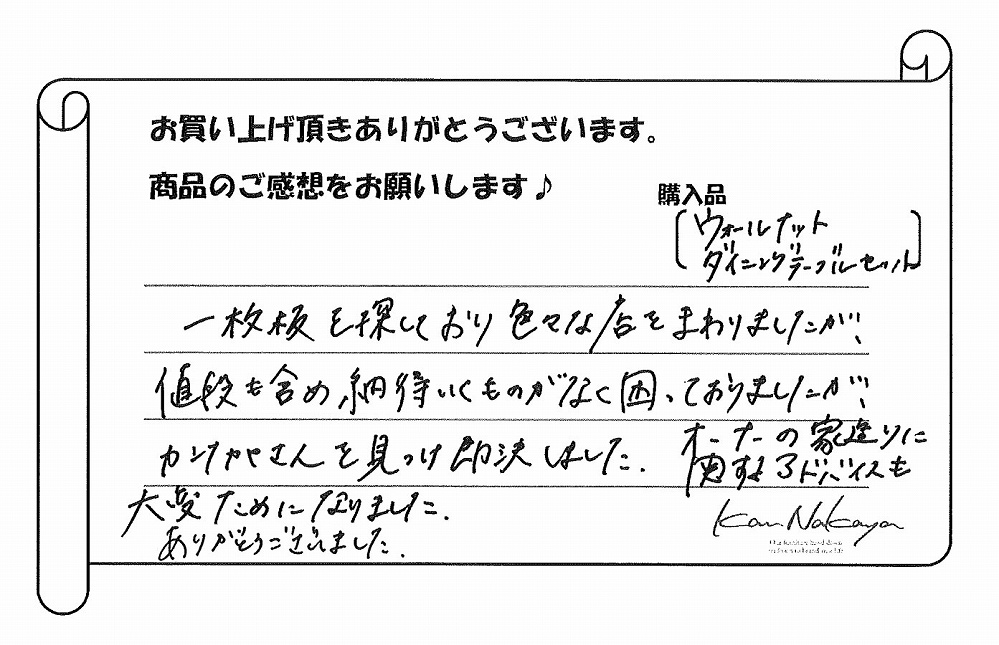 お買い上げ頂きありがとうございます。
商品のご感想をお願いします♪
購入品
ウォールナット
ダイニングテーブルセット
一枚板を探しており色々な店をまわりましたが、
値段も含め納得いくものがなく困っておりましたが、
カンナカヤさんを見つけ即決しました。
オーナーの家造りに
関するアドバイスも
大変ためになりました。
ありがとうございました。
Kan Nakaya